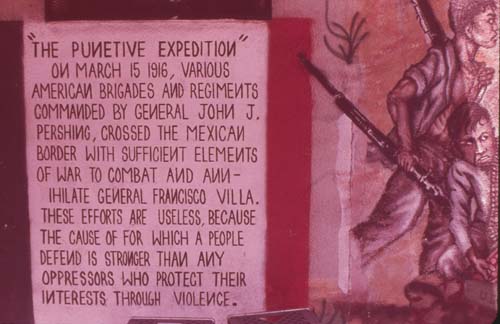 "THE PUNETIVE EXPEDITION"
ON MARCH 15 1916, VARIOUS
AMERICAN BRIGADES AND REGIMENTS
COMMANDED BY GENERAL JOHN J.
PERSHING, CROSSED THE MEXICAN
BORDER WITH SUFFICIENT ELEMENTS
OF WAR TO COMBAT AND ANN-
IHILATE GENERAL FRANCISCO VILLA.
THESE EFFORTS ARE USELESS, BECAUSE
THE CAUSE OF FOR WHICH A PEOPLE
DEFEND IS STRONGER THAN ANY
OPPRESSORS WHO PROTECT THEIR
INTERESTS THROUGH VIOLENCE.